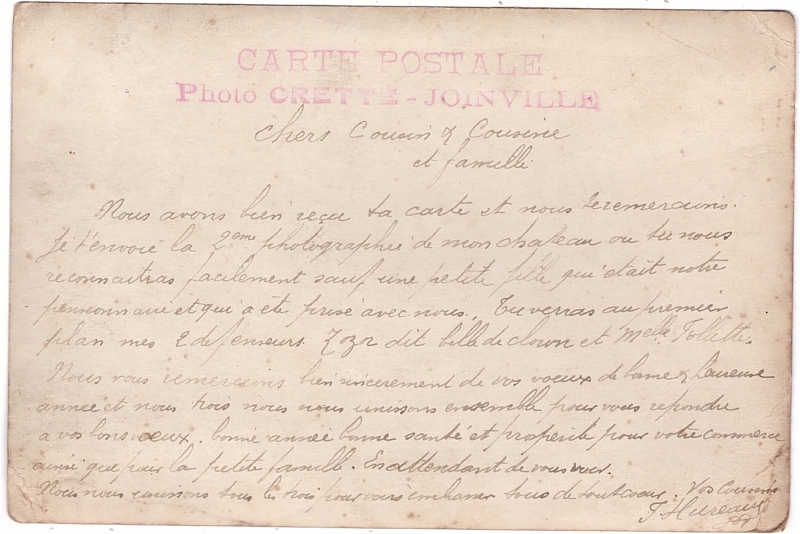 CARTE POSTALE
Photo CRETTÉ - JOINVILLE
Chers Cousin & Cousine
et famille
Nous avons bien reçu ta carte et nous te remercions.
Je t'envoie la 2eme photographie de mon chateau ou tu nous
reconnaitras facilement sauf une petite fille qui était notre
pensionnaire et qui a été prise avec nous. Tu verras au premier
plan mes 2 defenseurs. Zozo dit bille de clown et Melle Follette.
Nous vous remercions bien sincerement de vos voeux de bonne & heureuse
année et nous trois nous nous unissons ensemble pour vous repondre
a vos bons voeux. bonne année bonne santé et prosperité pour votre commerce
ainsi que pour la petite famille. En attendant de vous voir.
Nous nous unissons tous les trois pour vous embrasser tous de tout coeur. Vos Cousins